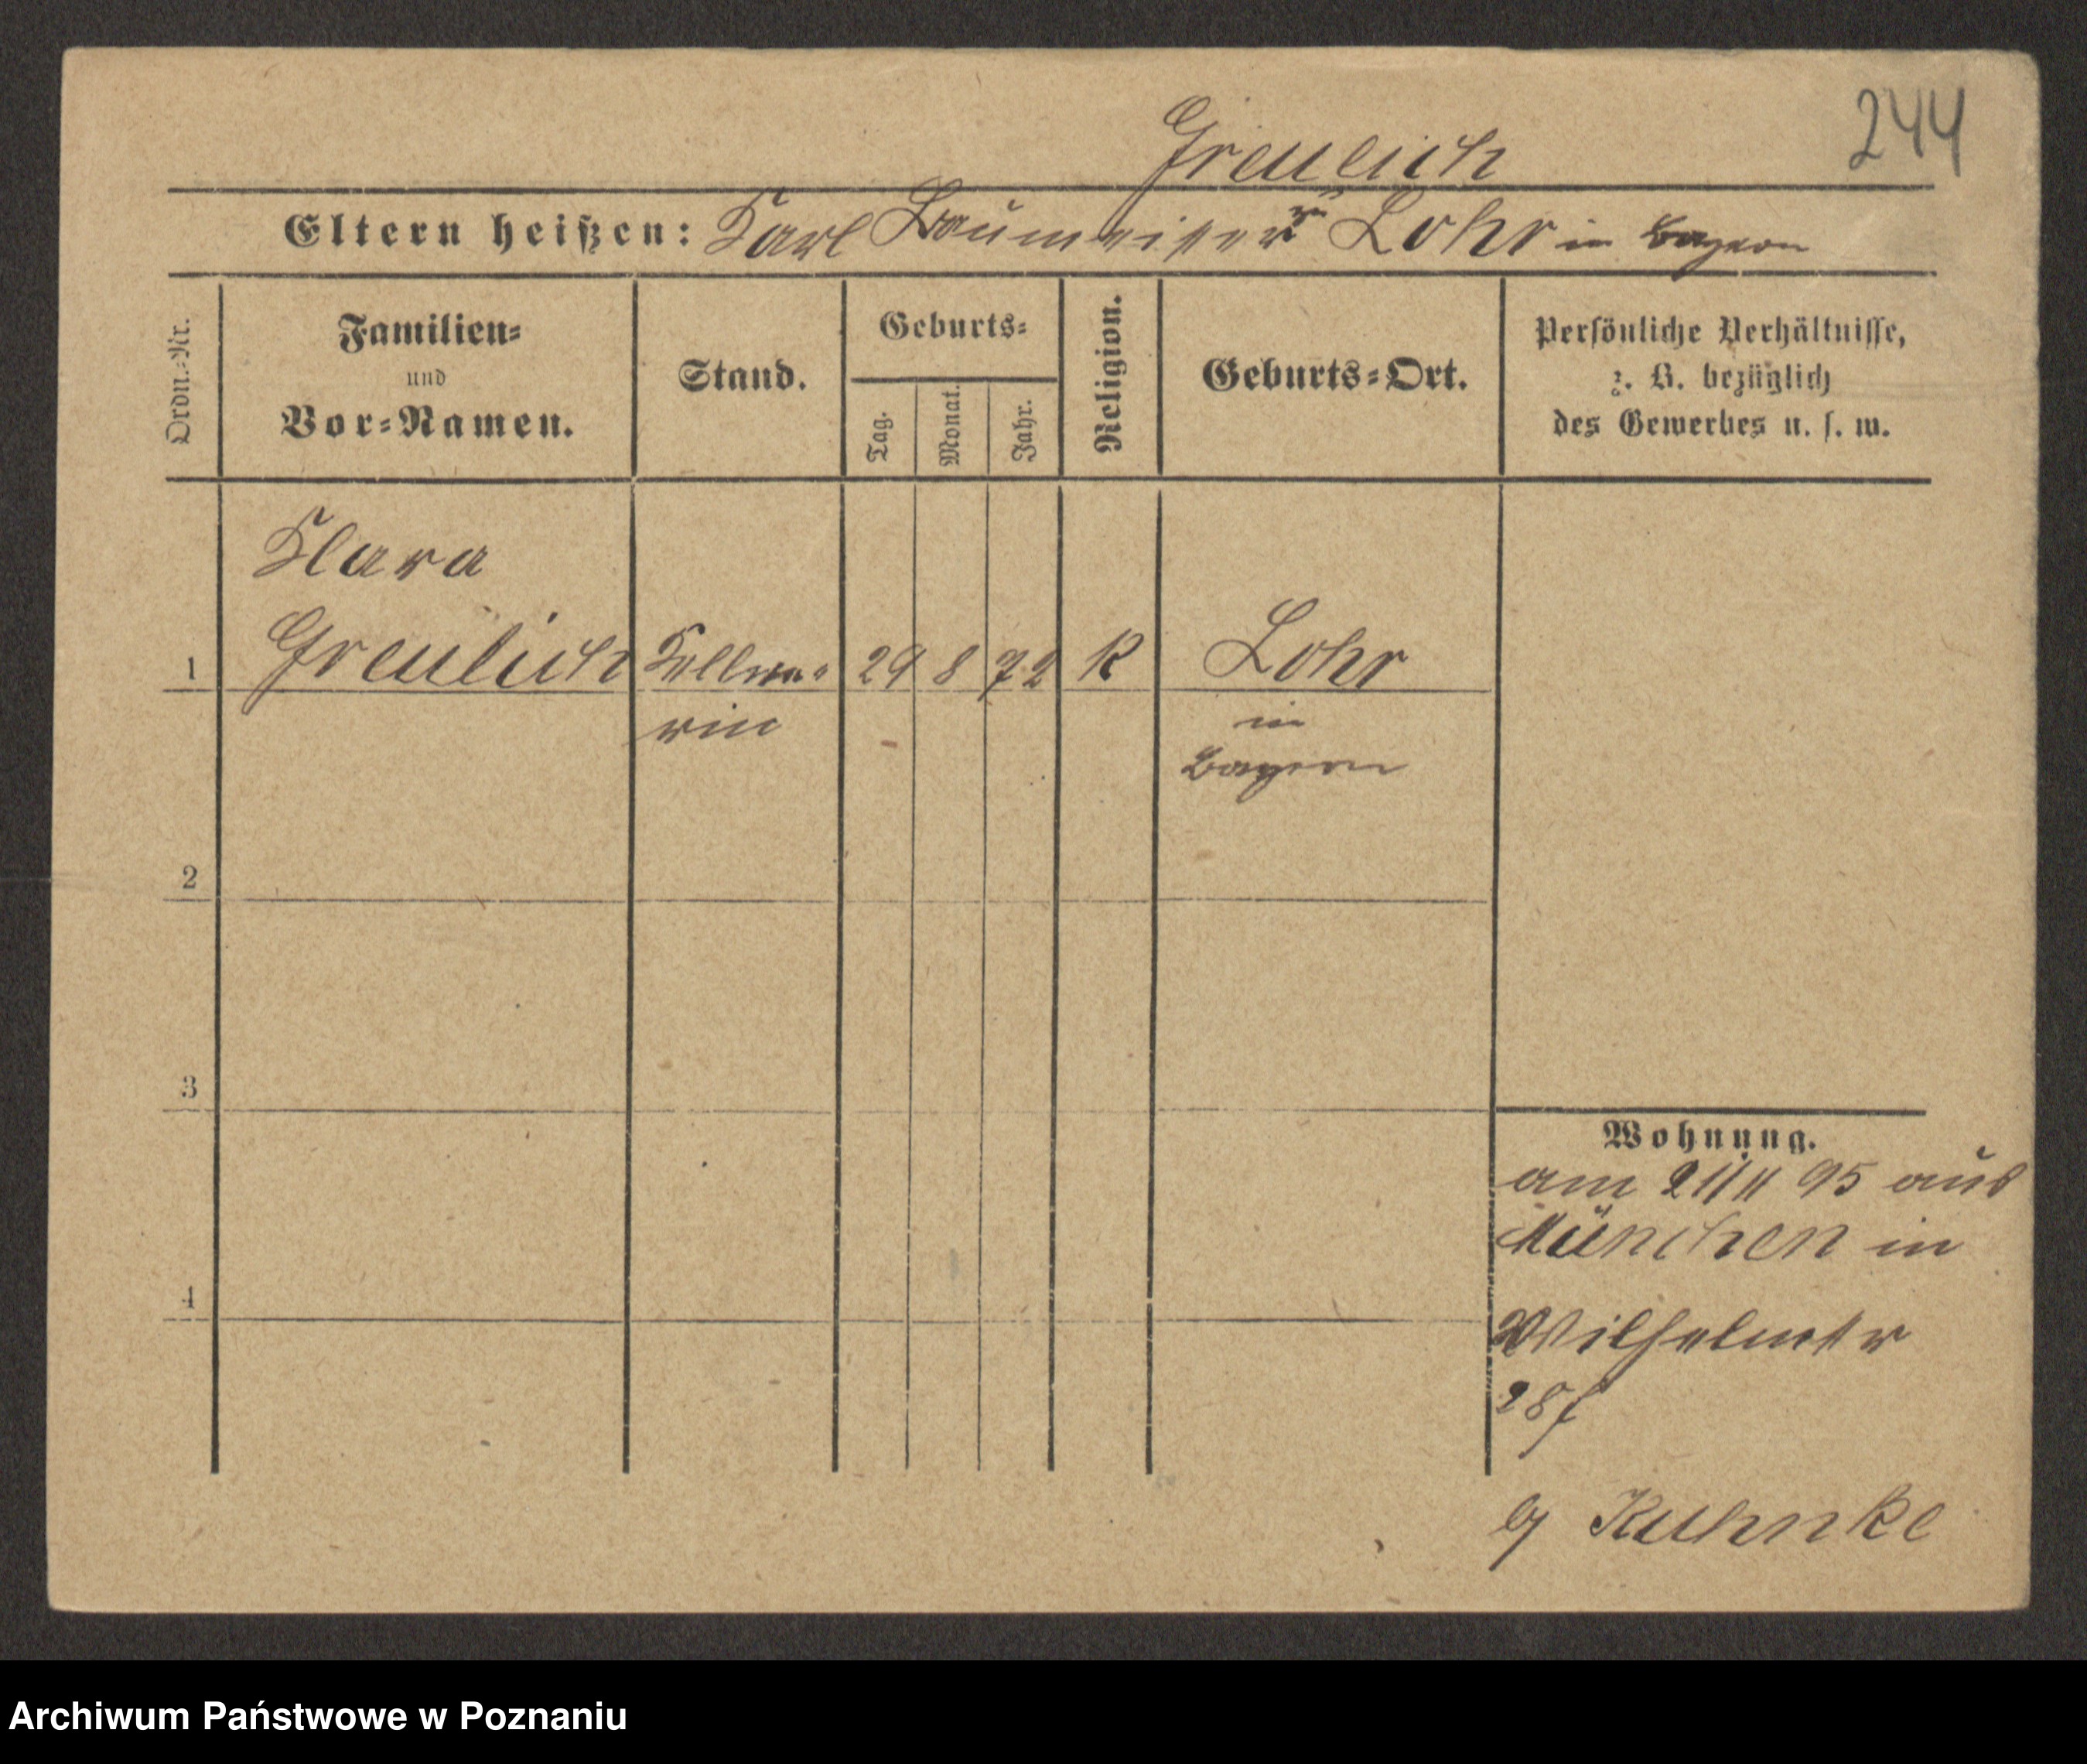 244
Greulich
Eltern heißen: Karl Baumeister zu Lohr in Bayern
Ordn.-Nr.
Familien-
und
Vor-Namen.
Stand.
Geburts-
Tag.
Monat.
Jahr.
Religion.
Geburts-Ort.
Persönliche Verhältnisse,
z. B. bezüglich
des Gewerbes u. s. w.
Klara
1 Greulich Kellne- 29 8 72 K Lohr
rin in
Bayern
2
3
4
Wohnung.
am 21/11 95 aus
München in
Wilhelmstr
28
Kuhnke
Archiwum Państwowe w Poznaniu